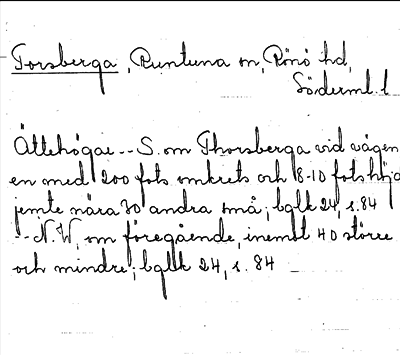 Torsberga, Runtuna sn, Rönö hd,
Söderml. l
Ättehögar -- S. om Thorsberga vid vägen
en med 200 fots omkrets och 8-10 fots höjd
jemte nära 30 andra små; bglk 24, s. 84
-- N.W. om föregående, inemot 40 större
och mindre; bglk 24, s. 84